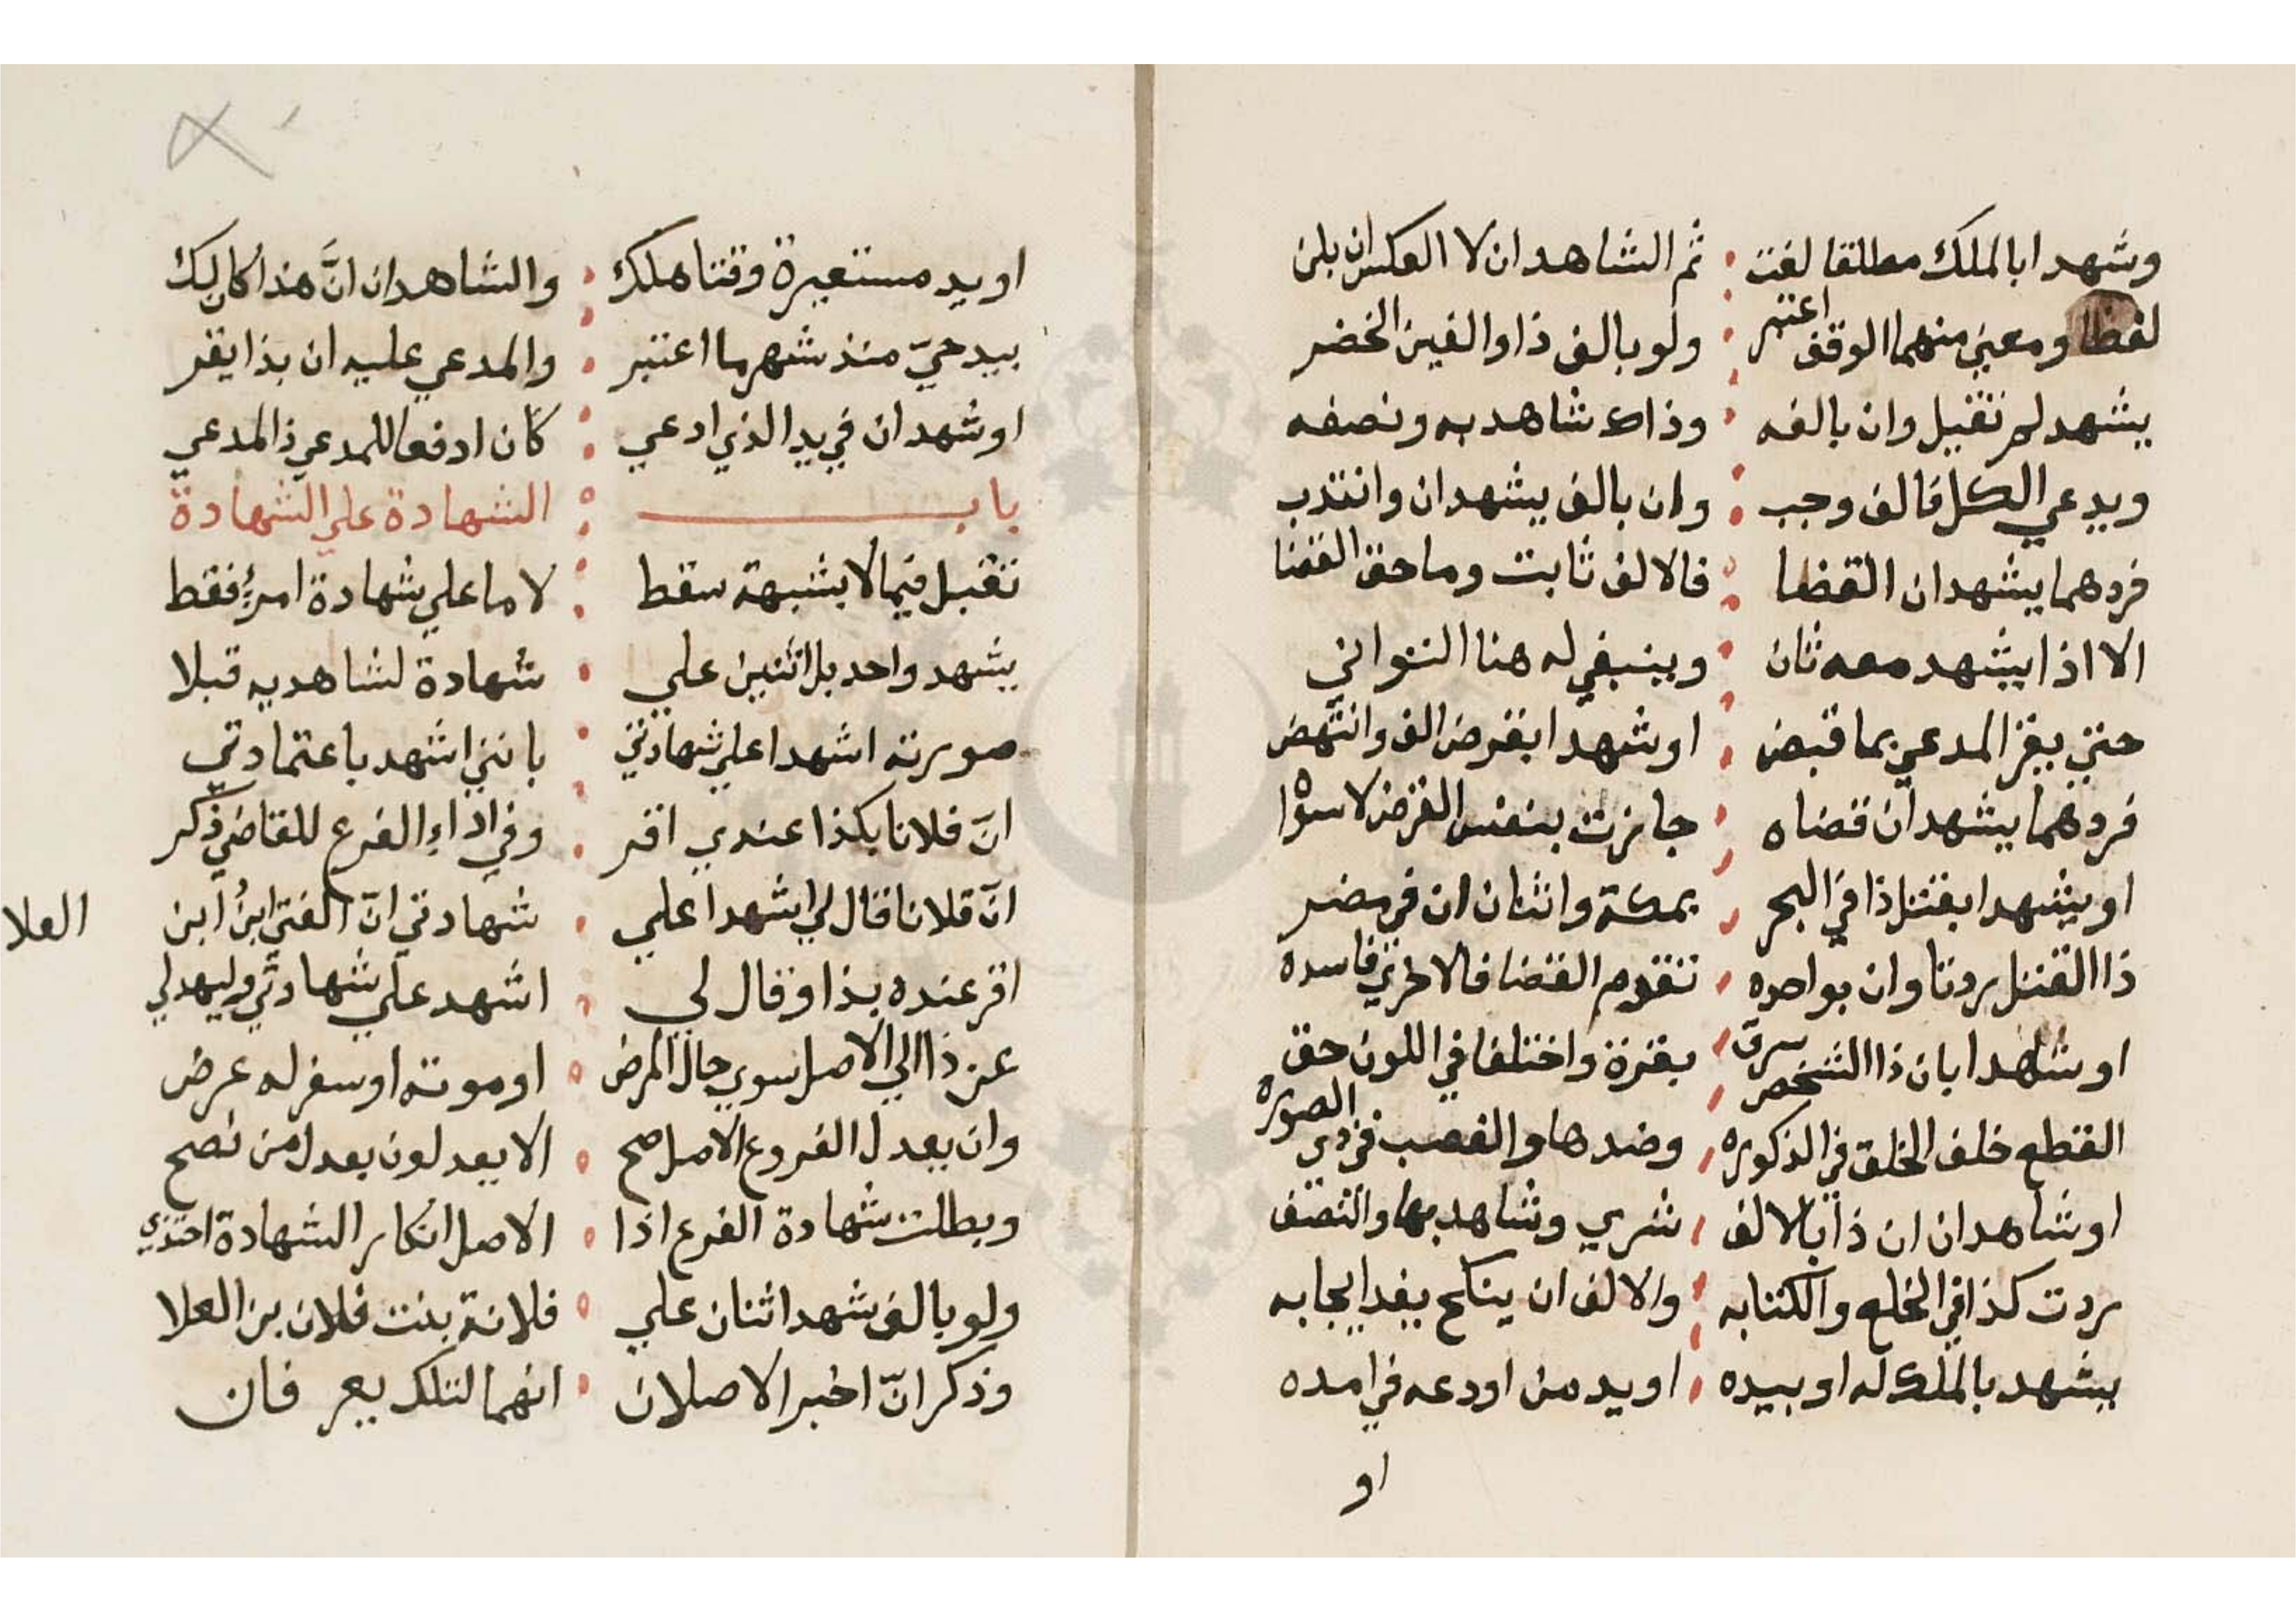 وشهدا بالملك مطلقا لغت ثم الشاهدان لا العكس ان يلن
لفظا ومعنى منهما الوقف اعتبر ولو بالف ذا والفين الخضر
يشهد لم تقبل وان بالفه وذاك شاهد به ونصفه
ويدعي الكل فالف وجب وان بالف يشهدان وانتدب
فردهما يشهد ان القضا فالالف ثابت وما حق القضا
الا اذا يشهد معه ثان وينبغي له هنا التواني
حتي يقر المدعي بما قبض او شهدا بقرض الف وانتهض
فردهما يشهد ان قضاه جازت بنفس القرض لا سواه
او يشهدا بقتل ذا في البحر بمكة واثنان ان في مصر
ذا القتل ردتا وان بواحده تقدم القضا فالاخري فاسده
او شاهدا بان ذا الشخص سرق بقرة واختلفا في اللون حق
القطع خلف الخلق في الذكوره وضدها والغصب في ذي الصوره
او شاهدان ان ذا بالالف شري وشاهد بها والنصف
ردت كذا في الخلع والكتابه والالف ان ينكح بغد ايجابه
يشهد بالملك له او بيده او يد من اودعه في امده
او
او يد مستعيرة وقتا هلك والشاهدان انّ هذا كان لك
بيد حيّ منذ شهر ما اعتبر والمدعي عليه ان بذا يقر
او شهد ان في يد الذي ادعي كان ادفعا للمدعي ذا المدعي
باب الشهادة علي الشهادة
تقبل فيما لا بشبهة سقط لا ما علي شهادة امرئ فقط
يشهد واحد بل اثنين علي شهادة لشاهديه قبلا
صورته اشهدا علي شهادتي بانني اشهد باعتمادتي
انّ فلانا بكذا عندي اقر وفي اداء الفرع للقاضي ذكر
انّ فلانا قال لي اشهدا علي شهادتي انّ الفتي ابنُ ابن العلا
اقر عنده بذا وقال لي اشهد علي شهادتي وليهد لي
عن ذا الي الاصل سوي حال المرض او موته او سفر له عرض
وان يعدل الفروع الاصل صح الا يعدلون يعدل من نصح
وبطلت شهادة الفرع اذا الاصل انكار الشهادة احتذي
ولو بالف شهد اثنان علي فلانة بنت فلان بن العلا
وذكر انّ اخبر الاصلان انهما لتلك يعرفان